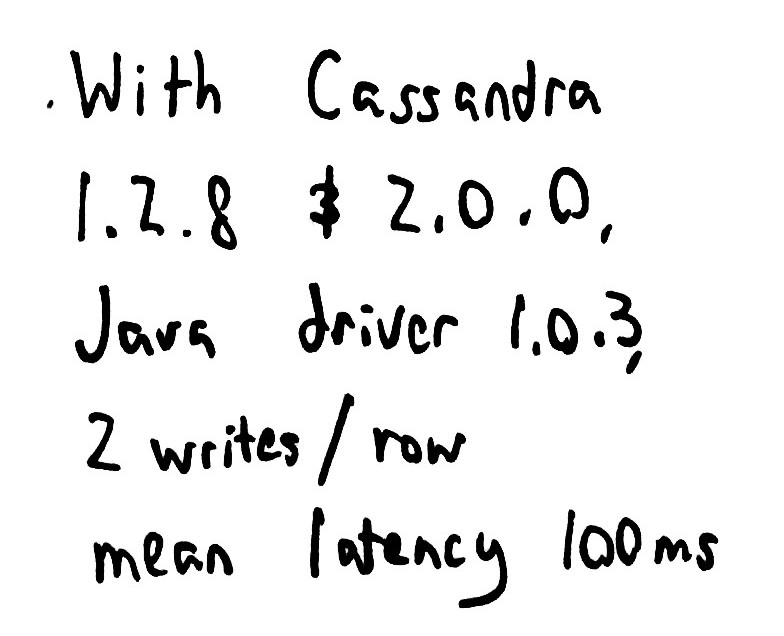 With Cassandra
1.2.8 & 2.0.0,
Java driver 1.0.3,
2 writes / row
mean latency 100ms